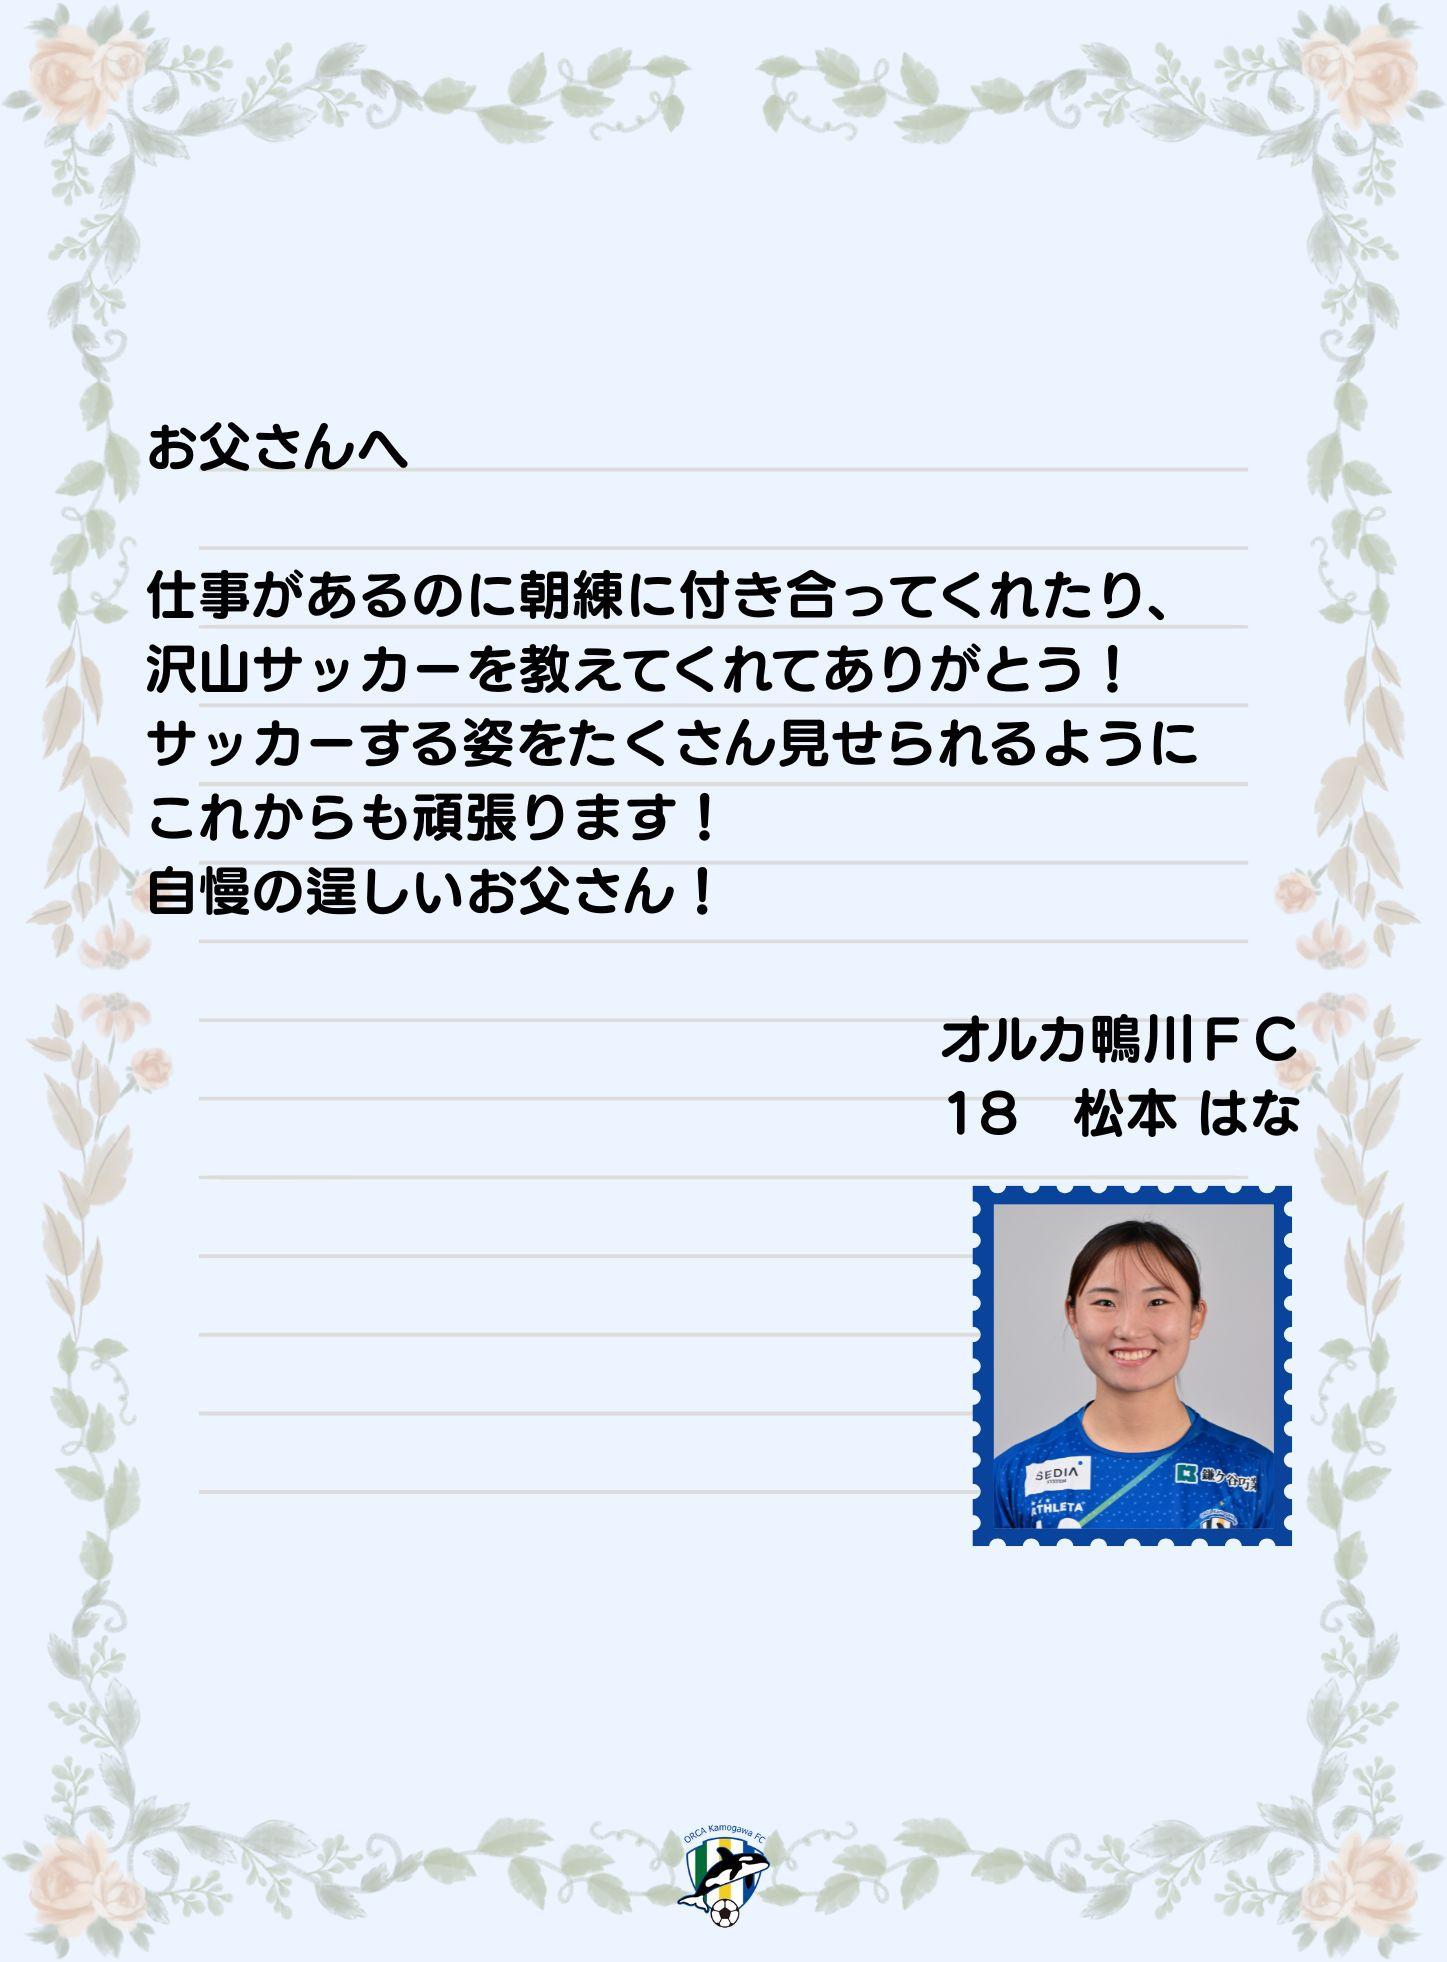 お父さんへ
仕事があるのに朝練に付き合ってくれたり、
沢山サッカーを教えてくれてありがとう！
サッカーする姿をたくさん見せられるように
これからも頑張ります！
自慢の逞しいお父さん！
オルカ鴨川ＦＣ
18　松本 はな
SEDIA
SYSTEM
鎌ケ谷巧業
ATHLETA
ORCA Kamogawa FC